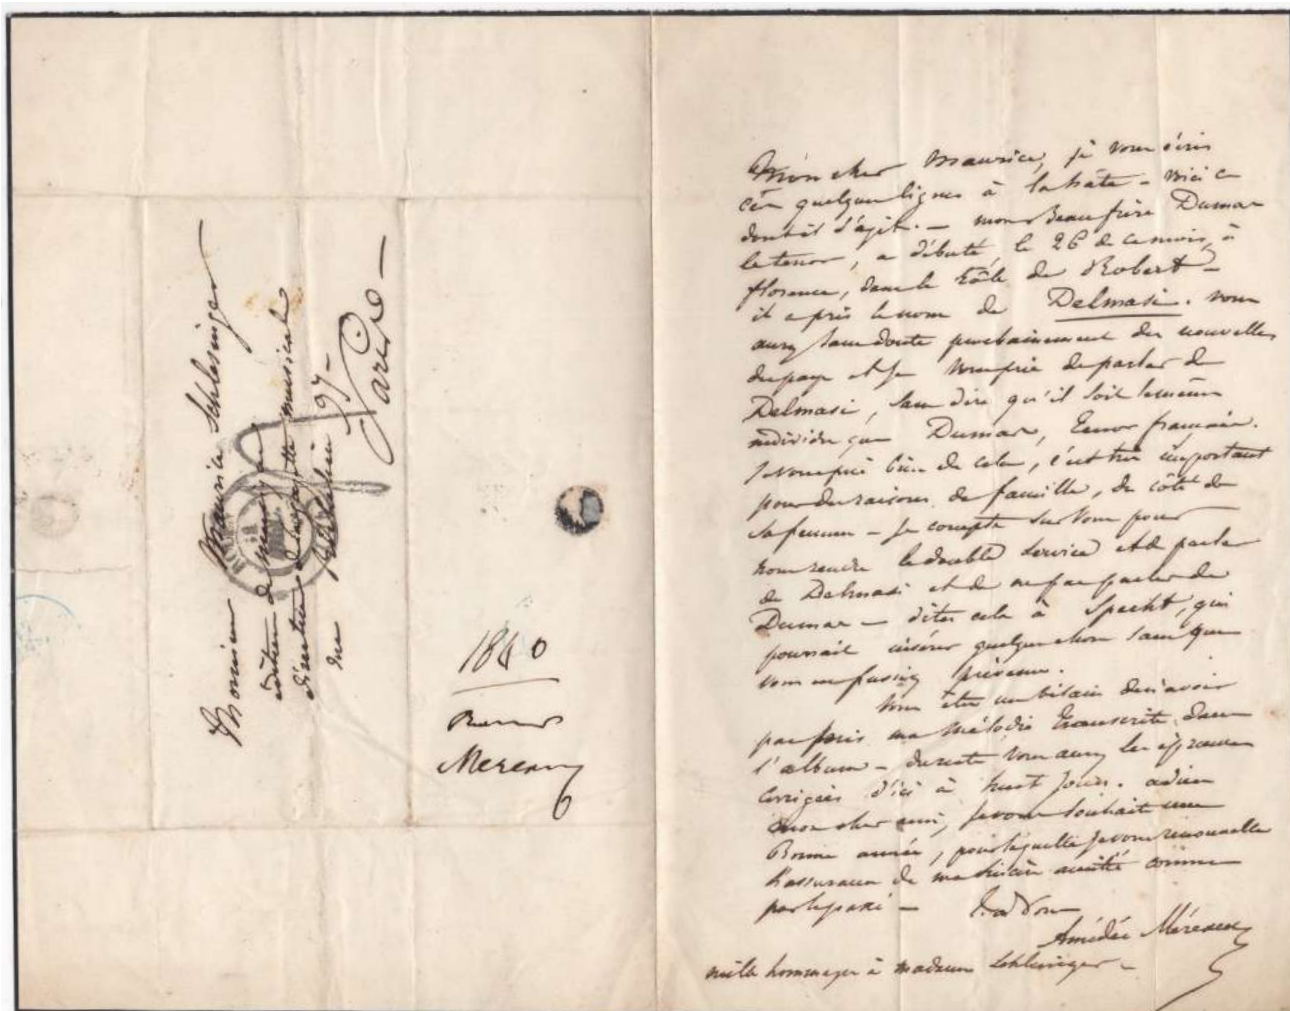 Monsieur Maurice Schlesinger
éditeur de musique et
directeur de la gazette musicale
rue Richelieu 97 –
Paris –
1840
Rouen
Mereaux
Mon cher Maurice, je vous écris
ces quelques lignes à la hâte – voici ce
dont il s'agit. – mon Beau frère Dumas
le tenor, a débuté, le 26 de ce mois, à
florence, dans le rôle de Robert –
il a pris le nom de Delmasi. vous
aurez sans doute prochainement des nouvelles
du pays et je vous prie de parler de
Delmasi, sans dire qu'il soit le même
individu que Dumas, tenor français.
Je vous prie bien de cela, c'est très important
pour des raisons de famille, du côté de
sa femme – Je compte sur vous pour
nous rendre le double service et de parler
de Delmasi et de ne pas parler de
Dumas – dites cela à Specht, qui
pourrait insérer quelque chose sans que
vous en fussiez prévenu.
Vous êtes un vilain de n'avoir
pas pris ma mélodie transcrite dans
l'album – du reste vous aurez les épreuves
corrigées d'ici à huit jours. adieu
mon cher ami, je vous souhaite une
Bonne année, pour laquelle je vous renouvelle
l'assurance de ma sincère amitié comme
par le passé – Tout à vous
Amédée Méreaux
mille hommages à madame Schlesinger –